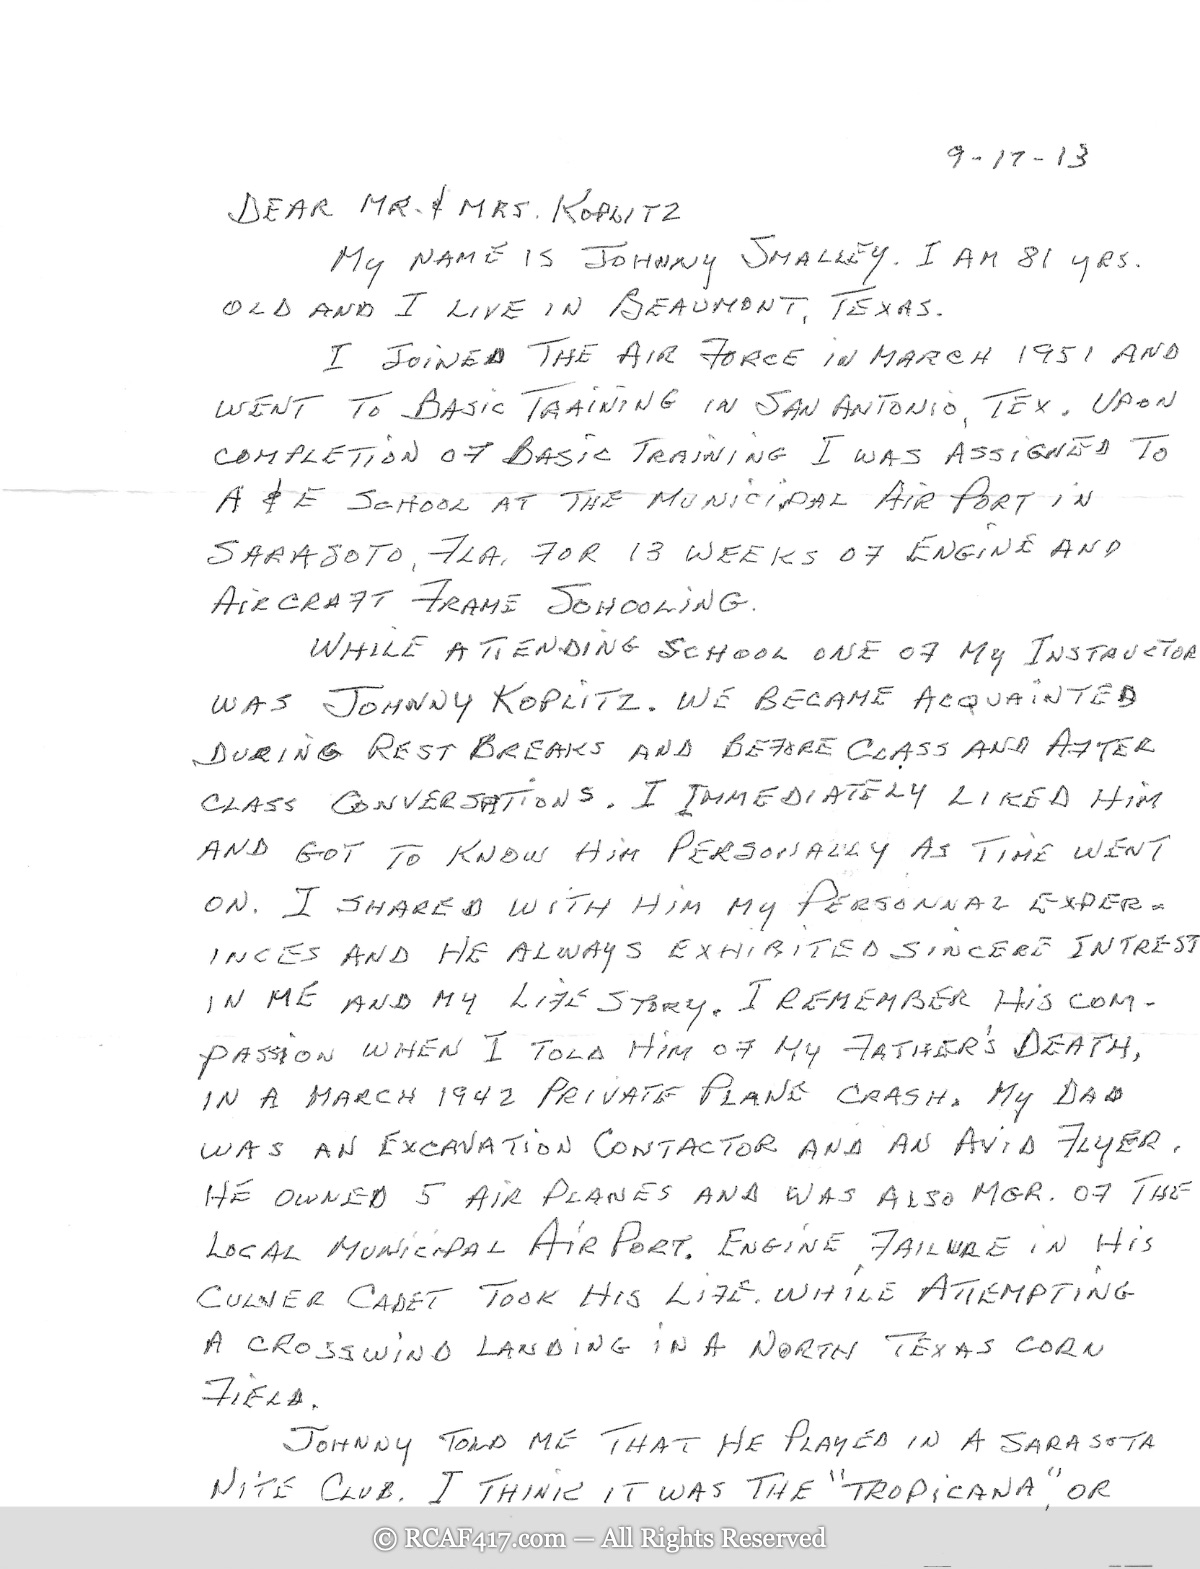 9-17-13
DEAR MR. & MRS. KOPLITZ
MY NAME IS JOHNNY SMALLEY. I AM 81 YRS.
OLD AND I LIVE IN BEAUMONT, TEXAS.
I JOINED THE AIR FORCE IN MARCH 1951 AND
WENT TO BASIC TRAINING IN SAN ANTONIO, TEX. UPON
COMPLETION OF BASIC TRAINING I WAS ASSIGNED TO
A & E SCHOOL AT THE MUNICIPAL AIR PORT IN
SARASOTO, FLA. FOR 13 WEEKS OF ENGINE AND
AIRCRAFT FRAME SCHOOLING.
WHILE ATTENDING SCHOOL ONE OF MY INSTRUCTOR
WAS JOHNNY KOPLITZ. WE BECAME ACQUAINTED
DURING REST BREAKS AND BEFORE CLASS AND AFTER
CLASS CONVERSATIONS. I IMMEDIATELY LIKED HIM
AND GOT TO KNOW HIM PERSONALLY AS TIME WENT
ON. I SHARED WITH HIM MY PERSONNAL EXPER-
INCES AND HE ALWAYS EXHIBITED SINCERE INTREST
IN ME AND MY LIFE STORY. I REMEMBER HIS COM-
PASSION WHEN I TOLD HIM OF MY FATHER'S DEATH,
IN A MARCH 1942 PRIVATE PLANE CRASH. MY DAD
WAS AN EXCAVATION CONTACTOR AND AN AVID FLYER.
HE OWNED 5 AIR PLANES AND WAS ALSO MGR. OF THE
LOCAL MUNICIPAL AIR PORT. ENGINE FAILURE IN HIS
CULVER CADET TOOK HIS LIFE. WHILE ATTEMPTING
A CROSSWIND LANDING IN A NORTH TEXAS CORN
FIELD.
JOHNNY TOLD ME THAT HE PLAYED IN A SARASOTA
NITE CLUB. I THINK IT WAS THE "TROPICANA", OR
© RCAF417.com — All Rights Reserved